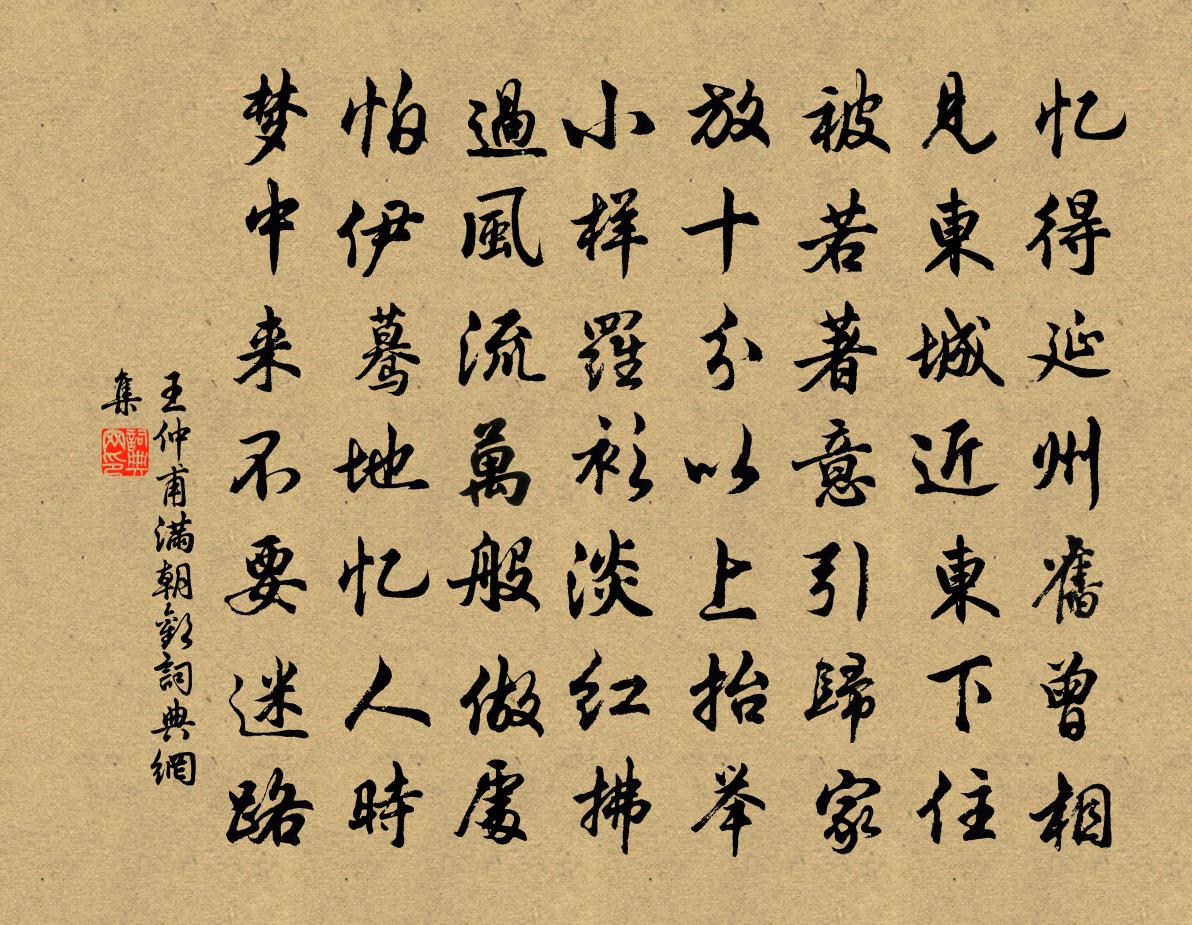 忆得延州舊曾相
見東城近東下住
被若著意引歸家
放十分以上抬举
小样羅衫淡红拂
過風流萬般做處
怕伊驀地忆人時
梦中来不要迷路
王仲甫满朝歡詞典網
集
詞典
网印